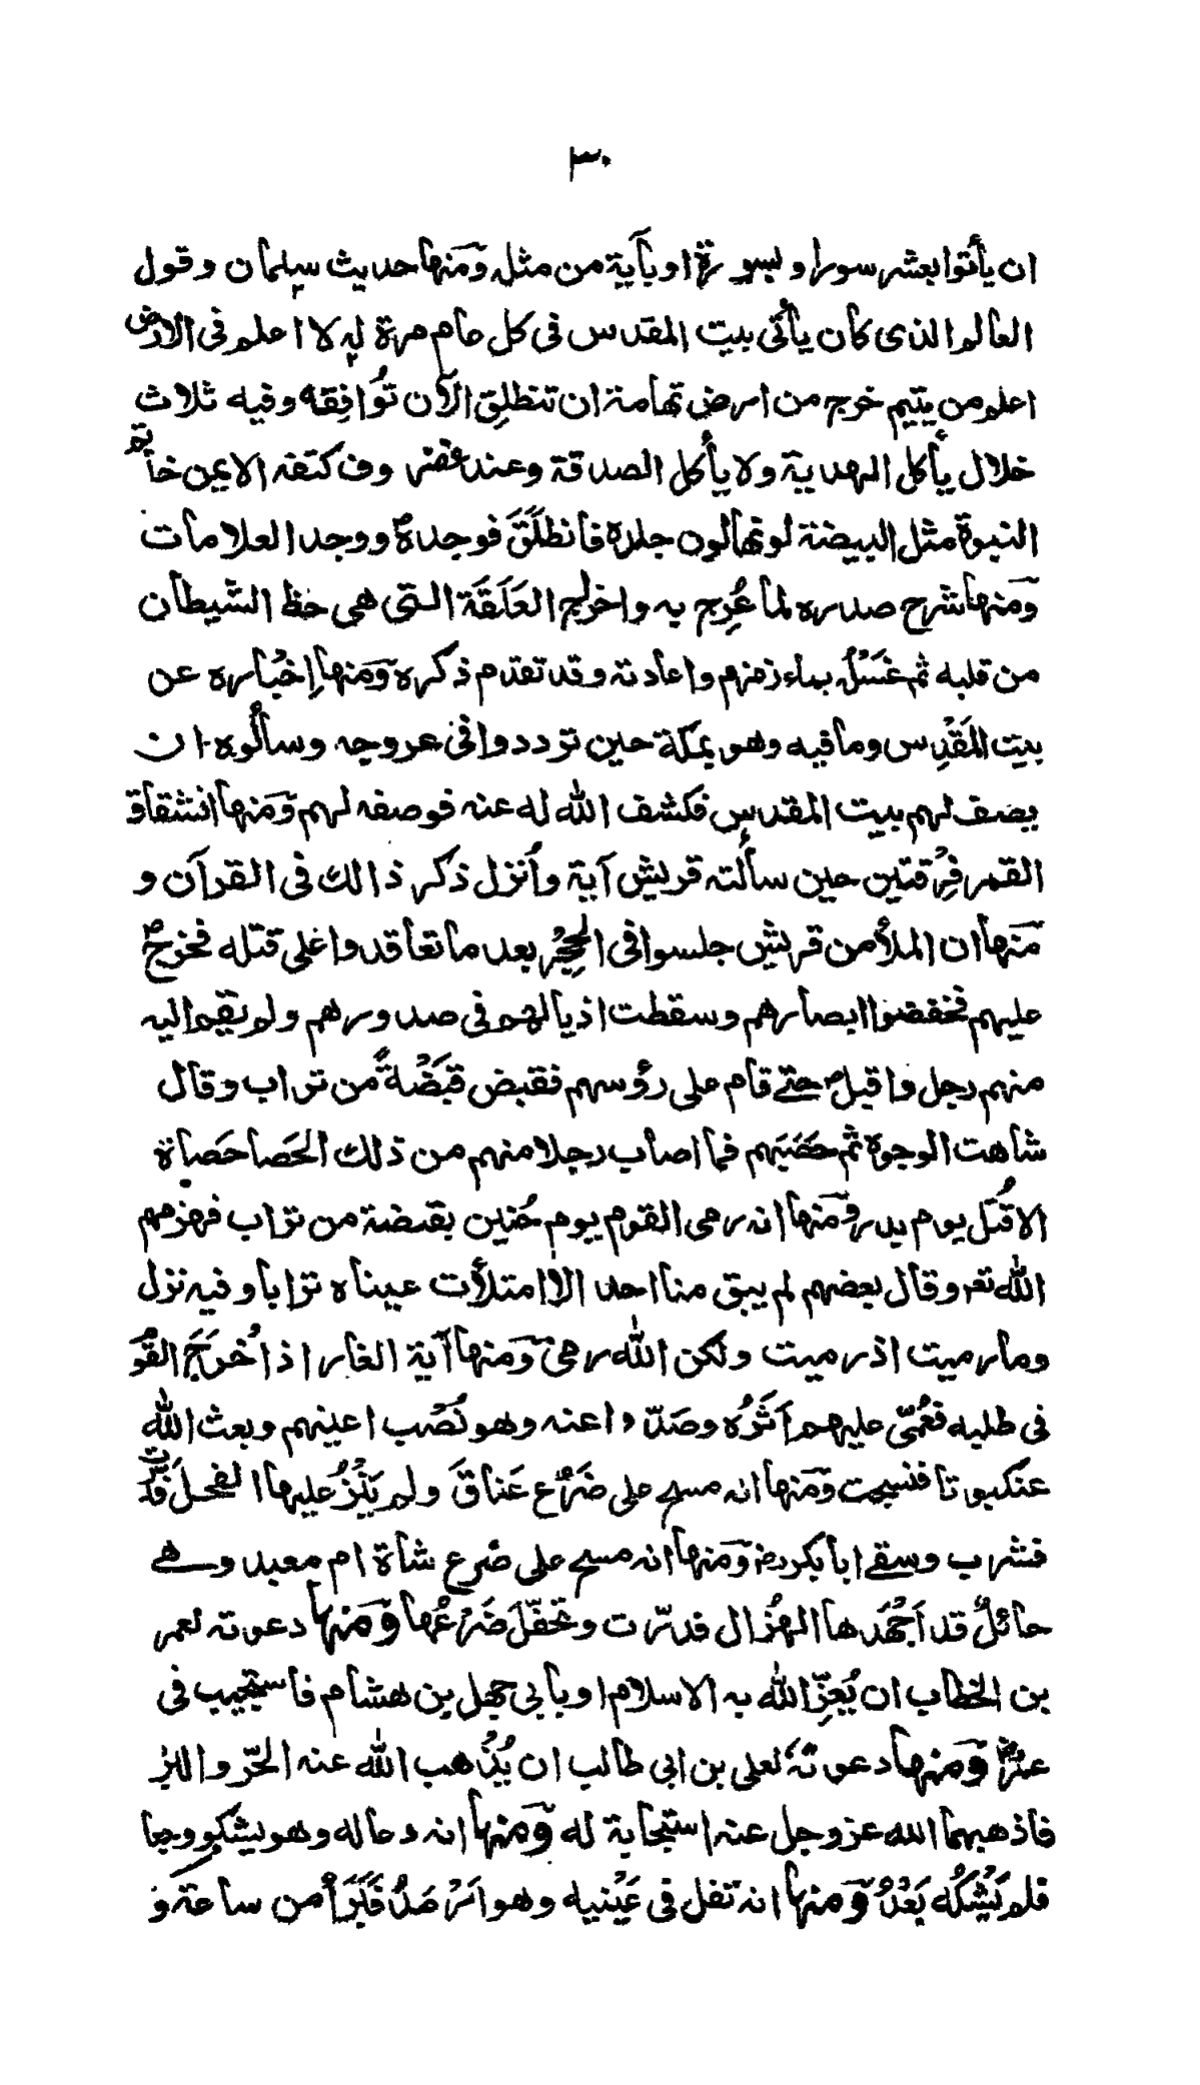 ٣٠
ان يأتوا بعشر سور او بسورة او بآية من مثله ومنها حديث سلمان وقول
العالم الذى كان يأتى بيت المقدس فى كل عام مرة له لا اعلم فى الارض
اعلم من يتيم خرج من ارض تهامة ان تنطلق الآن تُوافِقه وفيه ثلاث
خلال يأكل الهدية ولا يأكل الصدقة وعند غضر وف كتفه الايمن خاتم
النبوة مثل البيضة لونها لون جلده فانطلَقَ فوجده ووجد العلامات
ومنها شرح صدره لما عُرِج به واخراج العَلَقَة التى هى حظ الشيطان
من قلبه ثم غَسْلُ بماء زمزم واعادته وقد تقدم ذكره ومنها اِخْباره عن
بيت المَقْدِس وما فيه وهو بمكة حين ترددوا فى عروجه وسألُوه ان
يصف لهم بيت المقدس فكشف الله له عنه فوصفه لهم ومنها انشقاق
القمر فِرْقتين حين سألته قريش آية وأنزل ذكر ذالك فى القرآن و
منها ان الملأ من قريش جلسوا فى الحِجْر بعد ما تعاقدوا على قتله فخرج
عليهم فخفضوا ابصارهم وسقطت اذيالهم فى صدورهم ولم يقم اليه
منهم رجل واقبل حتے قام على رؤسهم فقبض قَبْضَةً من تراب وقال
شاهت الوجوه ثم حصبهم فما اصاب رجلا منهم من ذلك الحَصا حَصاة
الا قُتل يوم بدر ومنها انه رمى القوم يوم حُنين بقبضة من تراب فهزمهم
الله تعه وقال بعضهم لم يبق منا احد الا امتلأت عيناه ترابا وفيه نزل
وما رميت اذ رميت ولكن الله رمى ومنها آية الغار اذ اُخرَجَ القُو
فى طلبه فعُمّى عليهم اَثَرُه وصَدّوا عنه وهو نُصْب اعينهم وبعث الله
عنكبوتا فنسجت ومنها انه مسح على ضَرْع عَناق ولم يَنْزُ عليها الفحل فدَرّت
فشرب وسقے ابا بكر رض ومنها انه مسح على ضرع شاة ام معبد وهے
حائلٌ قد اَجْهَدها الهُزال فدرّت وتحفّلَ ضَرْعُها ومنها دعوته لعمر
بن الخطاب ان يُعِزّ الله به الاسلام او بابى جهل بن هشام فاستجيب فى
عمر ومنها دعوتُه لعلى بن ابى طالب ان يُذْهب الله عنه الحرّ والبر
فاذهبهما الله عز وجل عنه استجابة له ومنها انه دعا له وهو يشكو وجعا
فلم يَشْكُه بَعْدُ ومنها انه تفل فى عَيْنيه وهو ارمَدُ فَبَرَأ من ساعته و